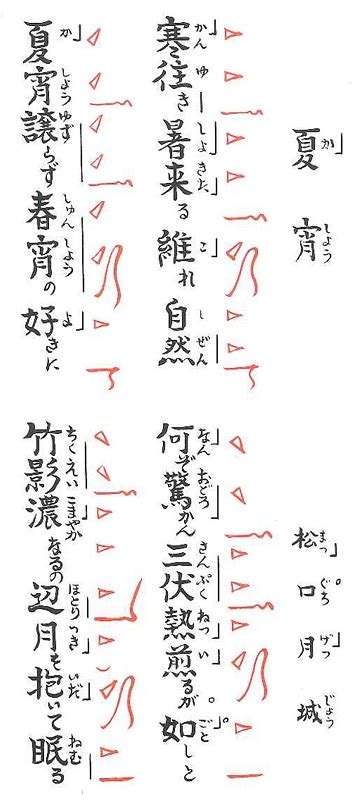 夏宵 松口月城
寒往き暑来る維れ自然 何ぞ驚かん三伏熱煎るが如しと
夏宵譲らず春宵の好きに 竹影濃なるの辺月を抱いて眠る